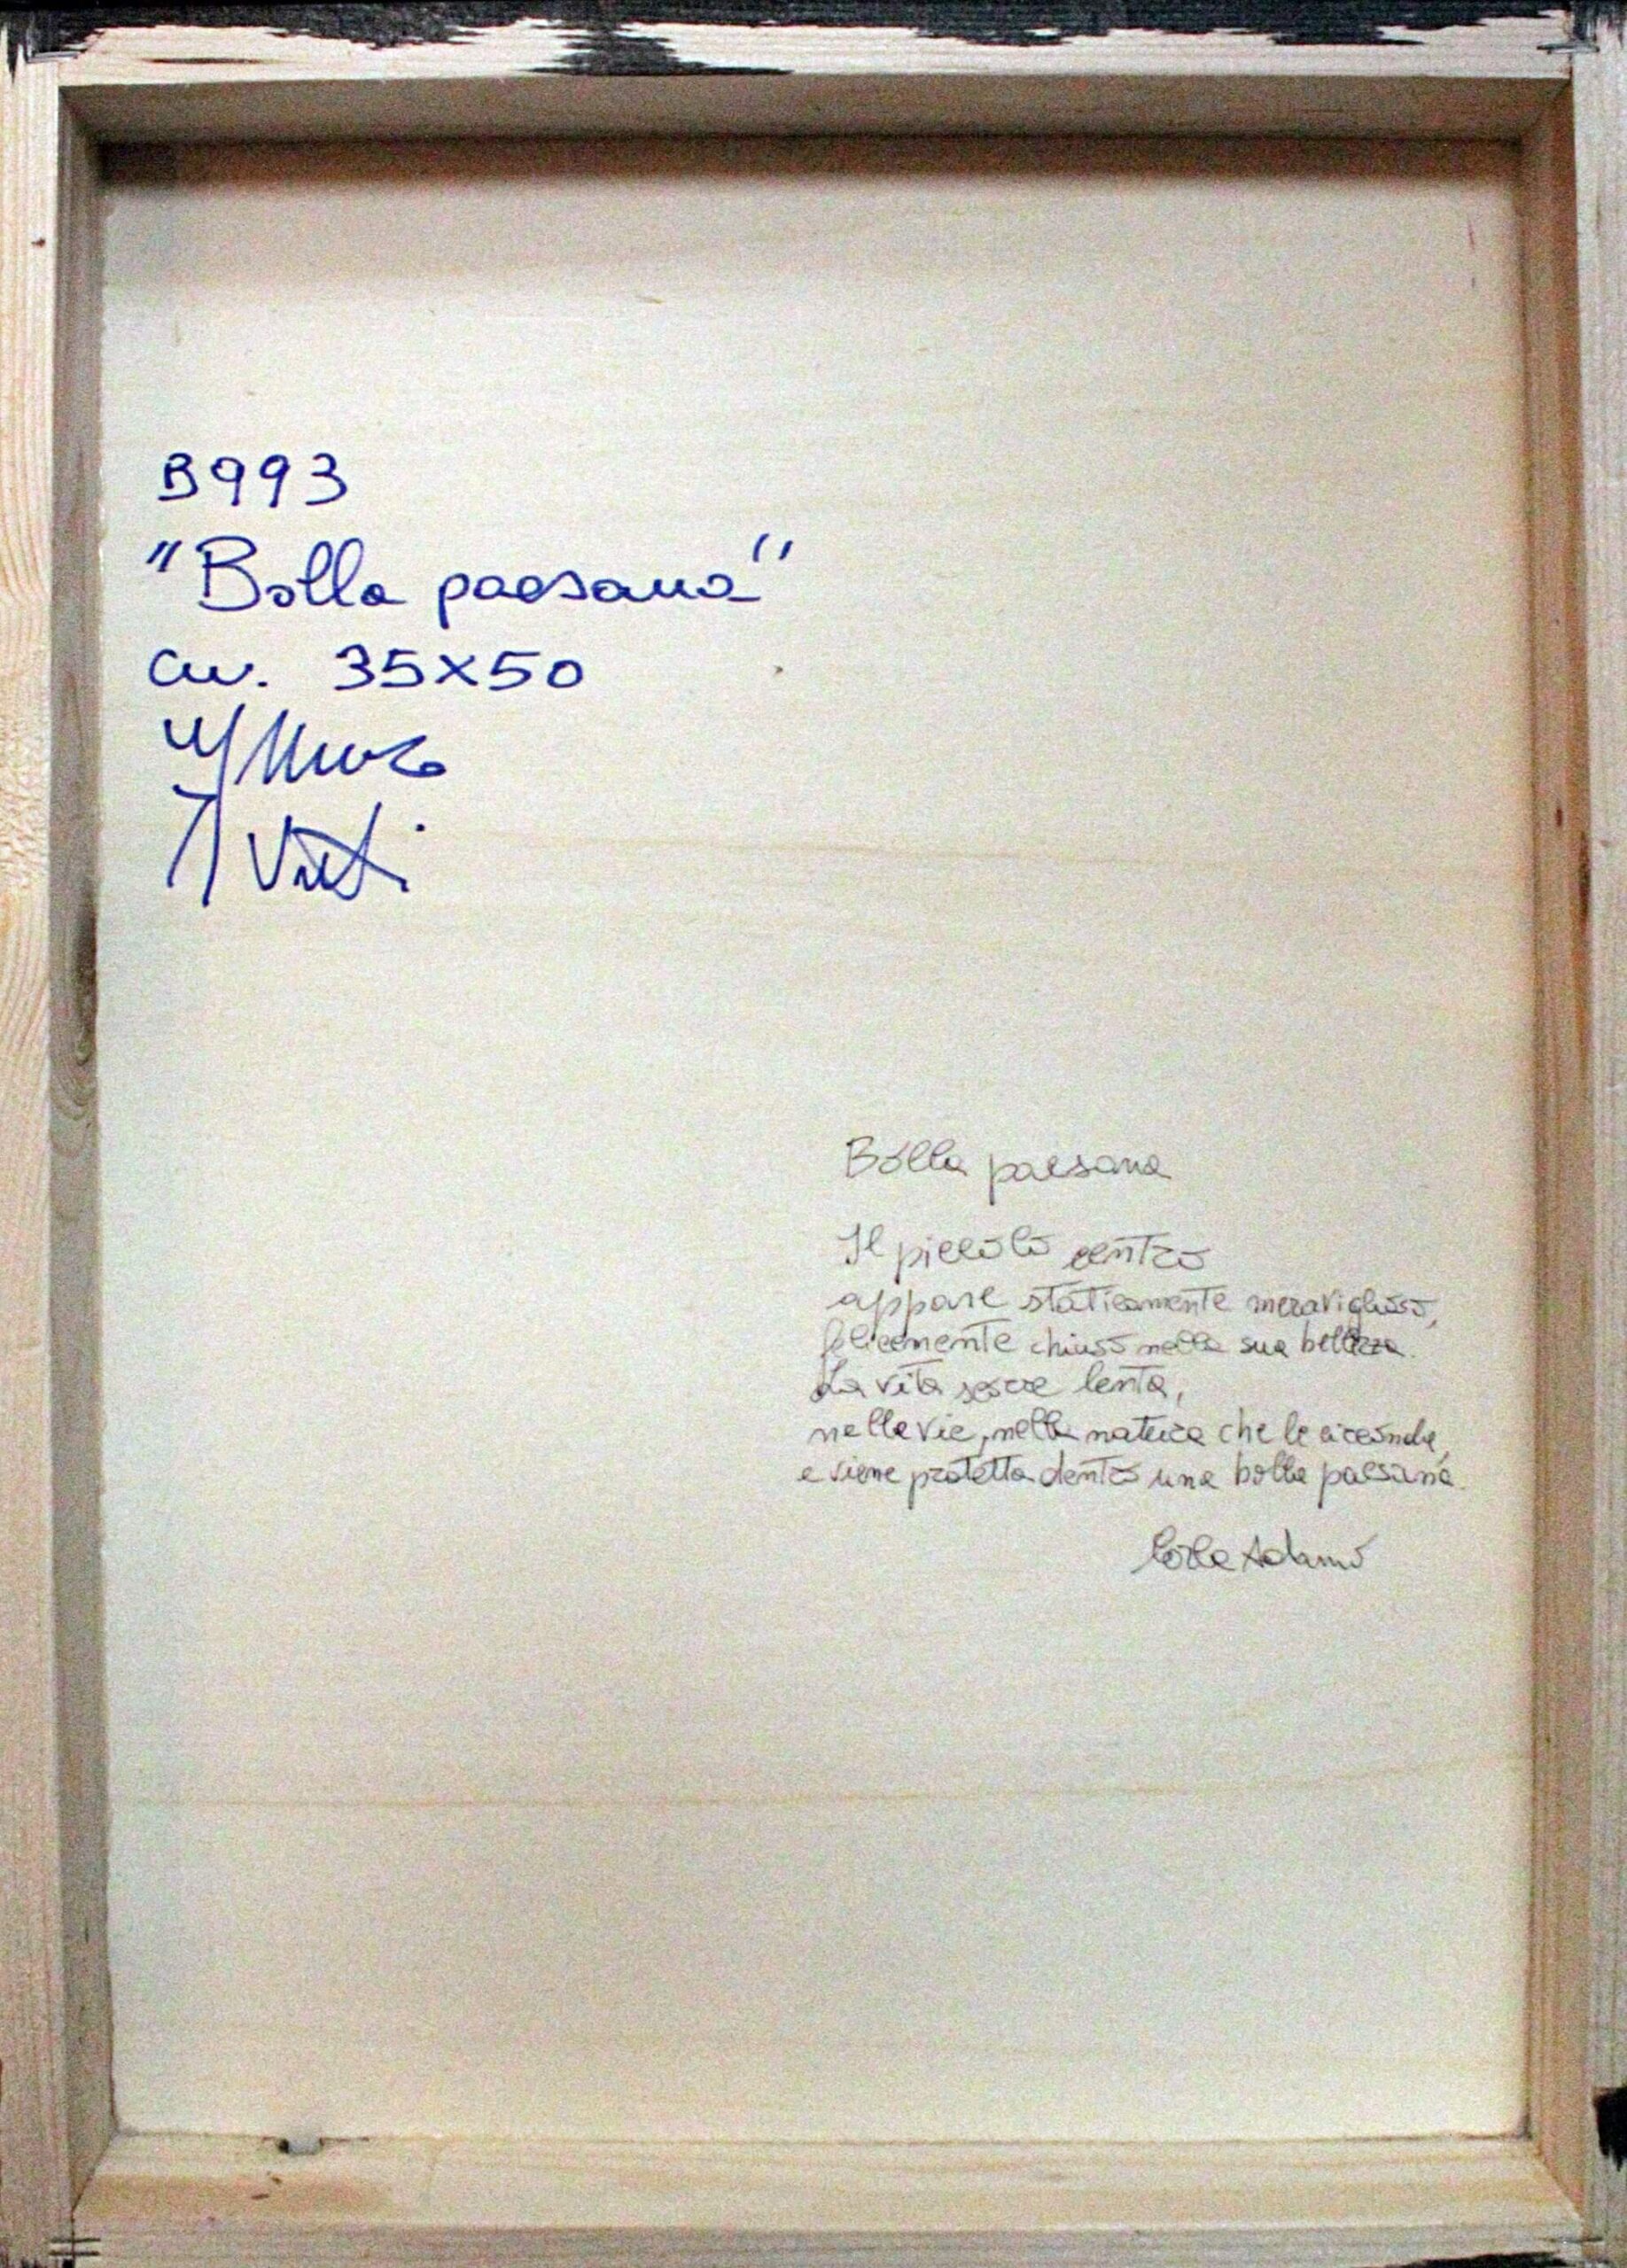 B993
"Bolla paesana"
cm. 35x50
Bolla paesana
Il piccolo centro
appare staticamente meraviglioso,
felicemente chiuso nella sua bellezza.
La vita scorre lenta,
nelle vie, nella natura che le circonda,
e viene protetta dentro una bolla paesana.
Adamo